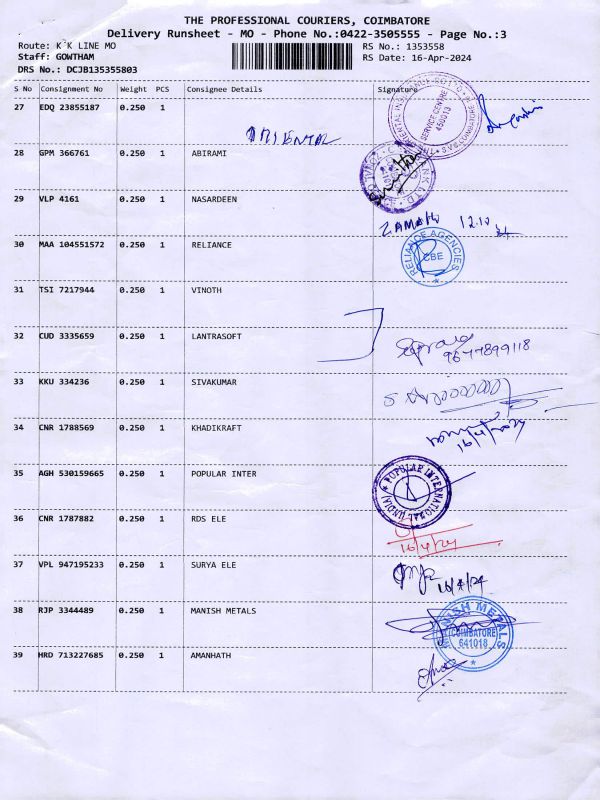 THE PROFESSIONAL COURIERS, COIMBATORE
Delivery Runsheet - MO - Phone No.:0422-3505555 - Page No.:3
Route: K K LINE MO
RS No.: 1353558
Staff: GOWTHAM
RS Date: 16-Apr-2024
DRS No.: DCJB135355803
S No Consignment No Weight PCS Consignee Details Signature
27 EDQ 23855187 0.250 1
ORIENTAL
SERVICE CENTRE
450013
28 GPM 366761 0.250 1 ABIRAMI
29 VLP 4161 0.250 1 NASARDEEN
12.10
30 MAA 104551572 0.250 1 RELIANCE
RELIANCE AGENCIES
CBE
31 TSI 7217944 0.250 1 VINOTH
32 CUD 3335659 0.250 1 LANTRASOFT
9677899118
33 KKU 334236 0.250 1 SIVAKUMAR
34 CNR 1788569 0.250 1 KHADIKRAFT
16/4/2024
35 AGH 530159665 0.250 1 POPULAR INTER
POPULAR INTERNATIONAL (INDIA)
36 CNR 1787882 0.250 1 RDS ELE
16/4/24
37 VPL 947195233 0.250 1 SURYA ELE
16/4/24
38 RJP 3344489 0.250 1 MANISH METALS
MANISH METALS
COIMBATORE
641018
39 HRD 713227685 0.250 1 AMANHATH